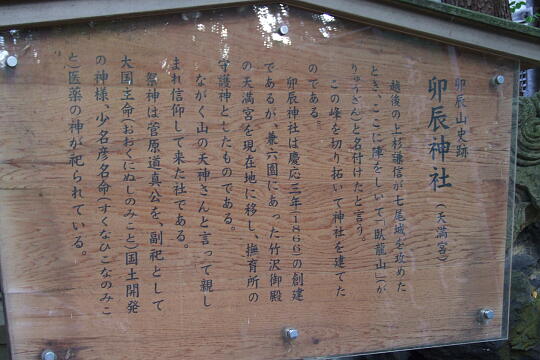 卯辰山史跡
卯辰神社(天満宮)
越後の上杉謙信が七尾城を攻めた
とき、ここに陣をしいて「臥龍山」(が
りゅうざん)と名付けたと言う。
この峰を切り拓いて神社を建てた
のである。
卯辰神社は慶応三年(1866)の創建
であるが、兼六園にあった竹沢御殿
の天満宮を現在地に移し、撫育所の
守護神としたものである。
ながく山の天神さんと言って親し
まれ信仰して来た社である。
祭神は菅原道真公を、副祀として
大国主命(おおくにぬしのみこと)国土開発
の神様、少名彦名命(すくなひこなのみこ
と)医薬の神が祀られている。